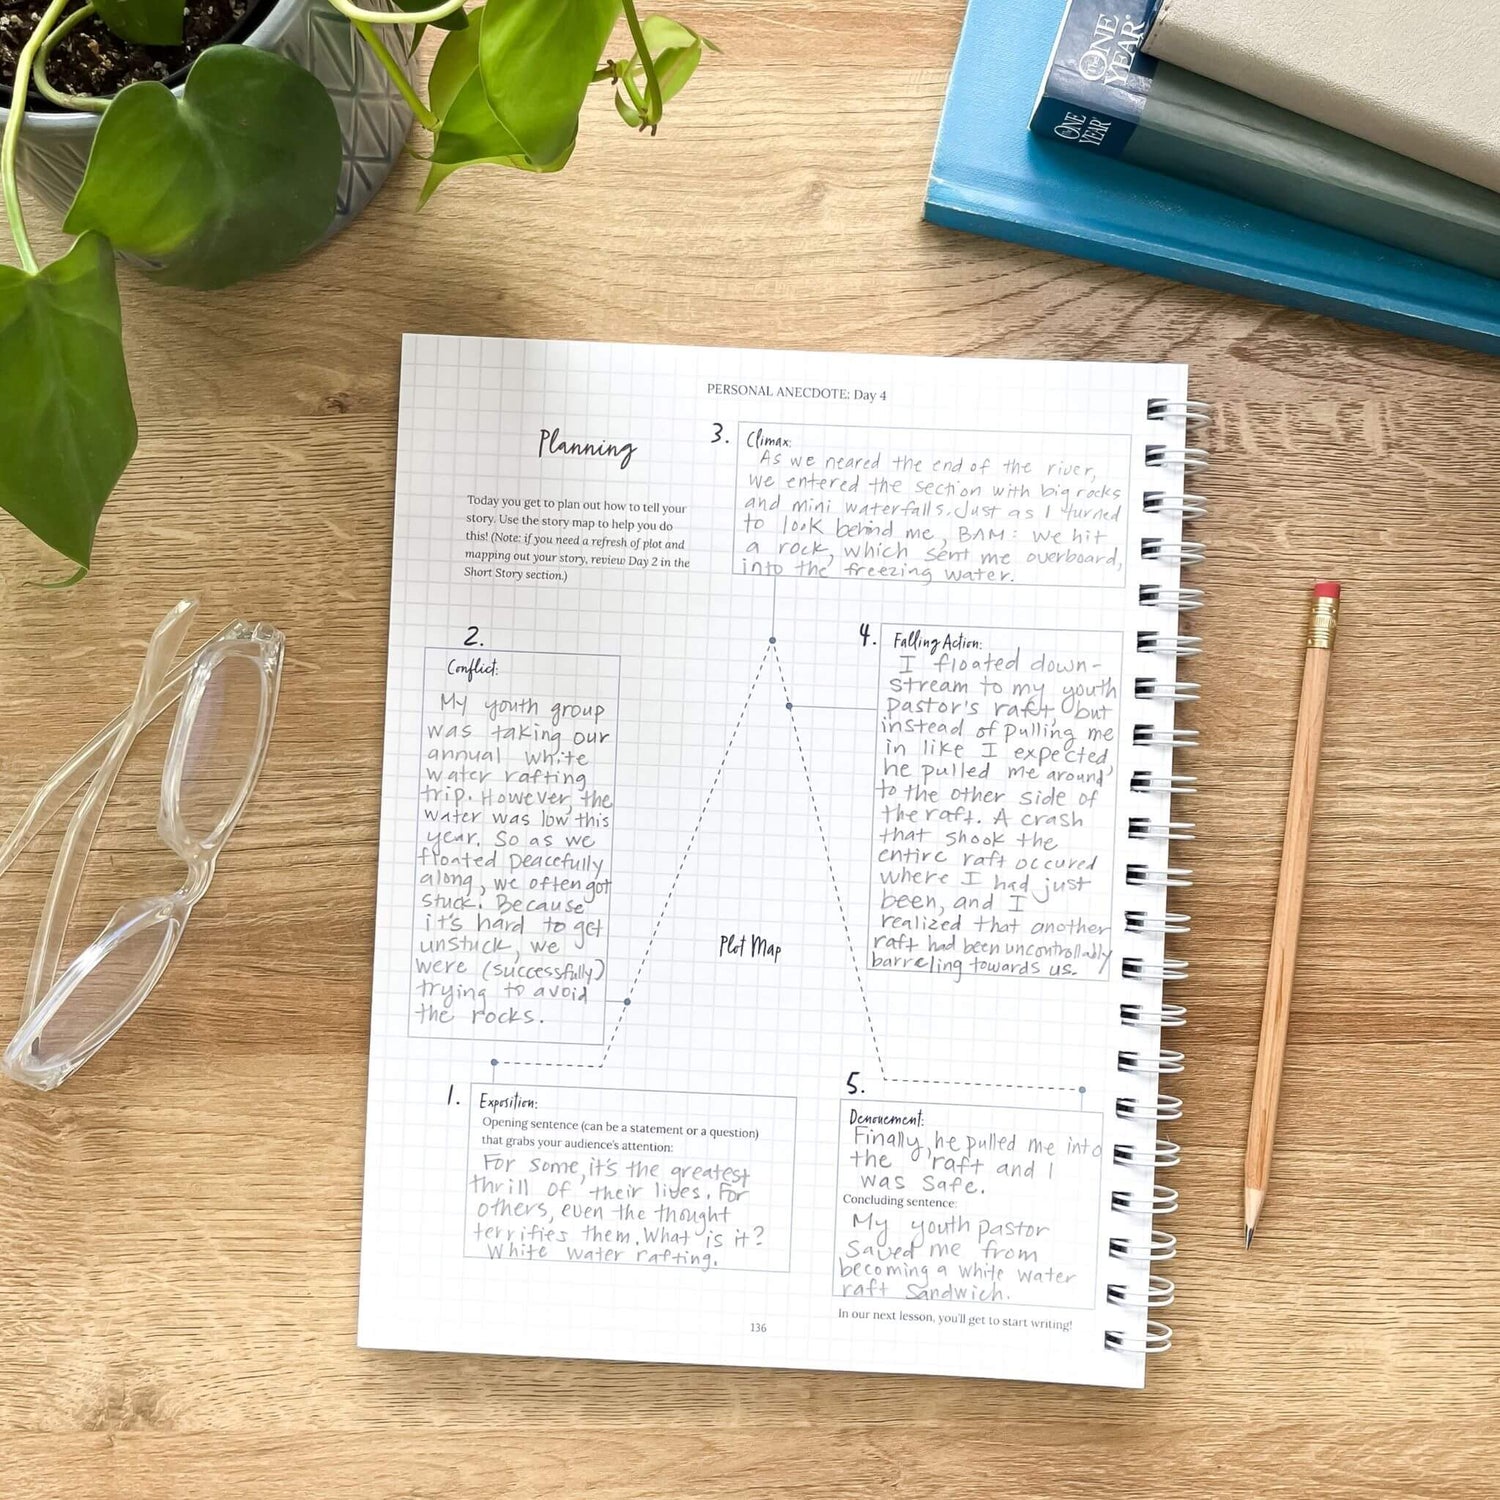 THE
ONE
YEAR®
THE
ONE
YEAR®
PERSONAL ANECDOTE: Day 4
Planning
Today you get to plan out how to tell your
story. Use the story map to help you do
this! (Note: if you need a refresh of plot and
mapping out your story, review Day 2 in the
Short Story section.)
3.
Climax:
As we neared the end of the river,
we entered the section with big rocks
and mini waterfalls. Just as I turned
to look behind me, BAM: We hit
a rock, which sent me overboard,
into the freezing water.
2.
Conflict:
My youth group
was taking our
annual white
water rafting
trip. However, the
water was low this
year. So as we
floated peacefully
along, we often got
stuck. Because
it's hard to get
unstuck, we
were (successfully)
trying to avoid
the rocks.
4.
Falling Action:
I floated down-
stream to my youth
pastor's raft, but
instead of pulling me
in like I expected,
he pulled me around
to the other side of
the raft. A crash
that shook the
entire raft occured
where I had just
been, and I
realized that another
raft had been uncontrollably
barreling towards us.
Plot Map
1.
Exposition:
Opening sentence (can be a statement or a question)
that grabs your audience's attention:
For some, it's the greatest
thrill of their lives. For
others, even the thought
terrifies them. What is it?
White water rafting.
5.
Denouement:
Finally, he pulled me into
the raft and I
was safe.
Concluding sentence:
My youth pastor
saved me from
becoming a white water
raft sandwich.
In our next lesson, you'll get to start writing!
136